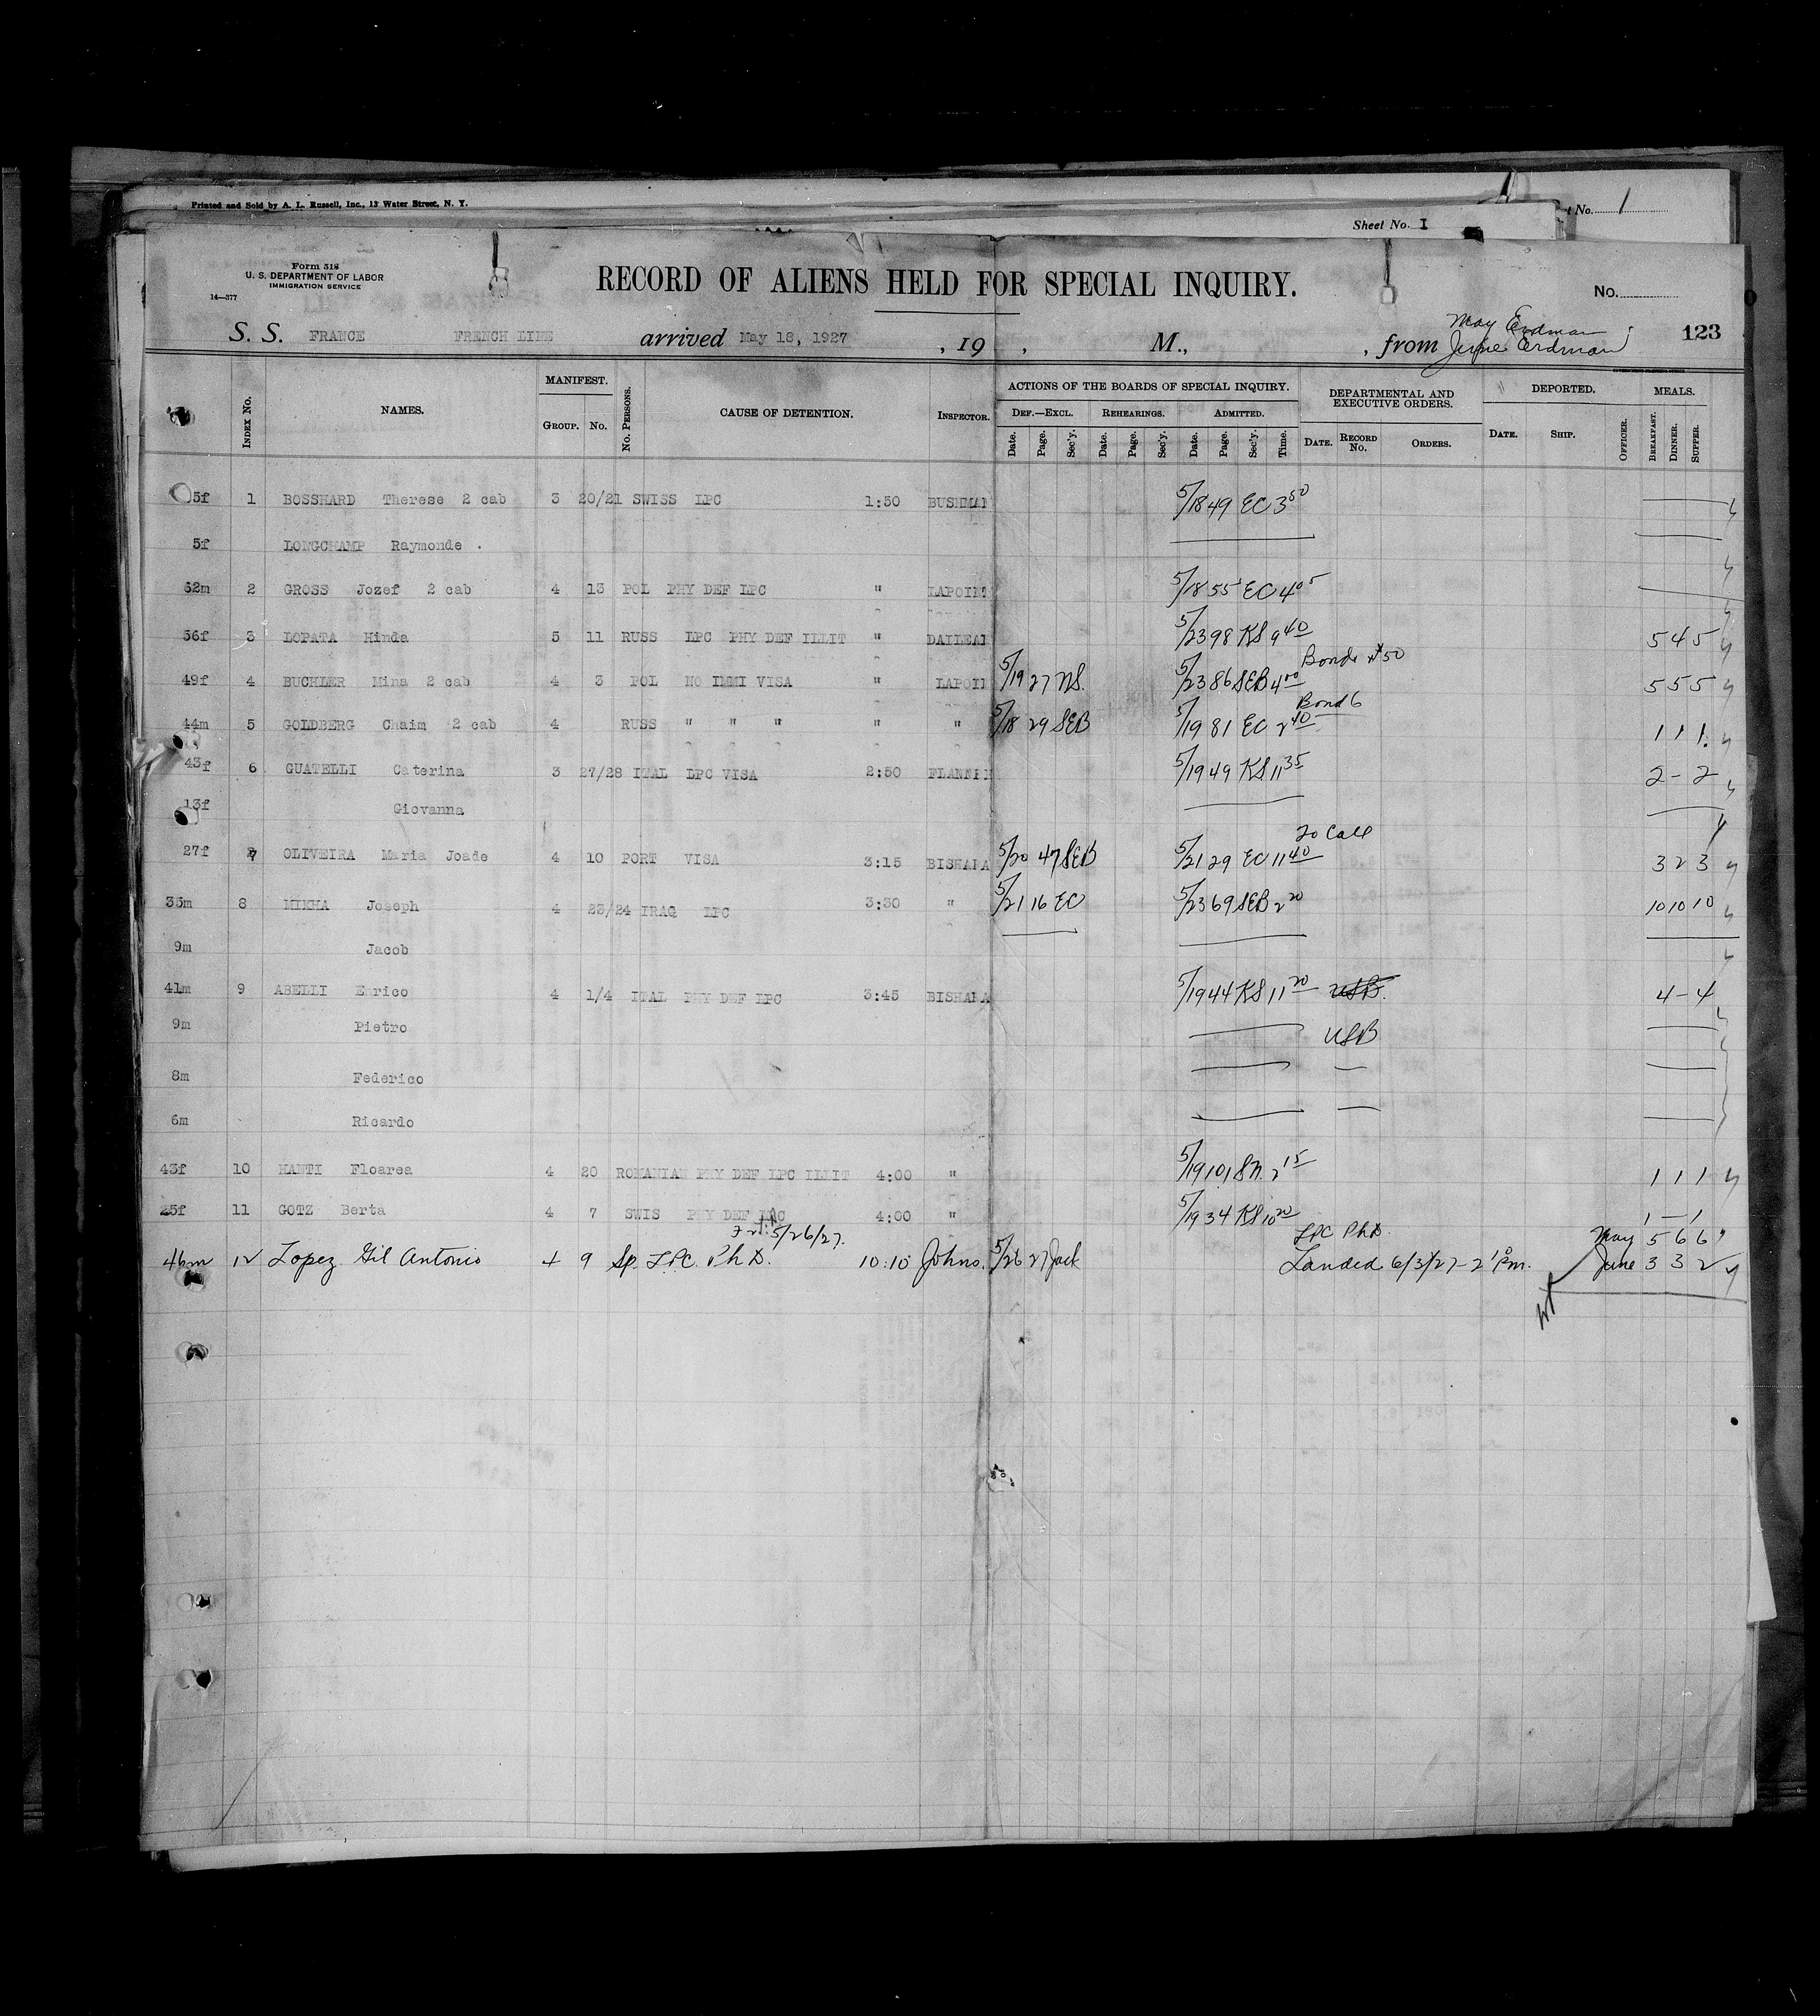 Printed and Sold by A. L. Russell, Inc., 13 Water Street, N. Y.
t No. 1
Sheet No. I
Form 518
U. S. DEPARTMENT OF LABOR
IMMIGRATION SERVICE
14—377
RECORD OF ALIENS HELD FOR SPECIAL INQUIRY.
No.
S. S. FRANCE FRENCH LINE arrived May 18, 1927, 19 , M., , from May Erdman
June Erdman 123
INDEX No. NAMES. MANIFEST. GROUP. No. No. PERSONS. CAUSE OF DETENTION. INSPECTOR. ACTIONS OF THE BOARDS OF SPECIAL INQUIRY. DEF.—EXCL. Date. Page. Sec'y. REHEARINGS. Date. Page. Sec'y. ADMITTED. Date. Page. Sec'y. Time. DEPARTMENTAL AND EXECUTIVE ORDERS. DATE. RECORD No. ORDERS. DEPORTED. DATE. SHIP. OFFICER. MEALS. BREAKFAST. DINNER. SUPPER.
5f 1 BOSSHARD Therese 2 cab 3 20/21 SWISS LPC 1:50 BUSHMAN 5/18 49 EC 3 50
5f LONGCHAMP Raymonde .
62m 2 GROSS Jozef 2 cab 4 13 POL PHY DEF LPC " LAPOINT 5/18 55 EC 4 05
56f 3 LOPATA Hinda 5 11 RUSS LPC PHY DEF ILLIT " DAILEAD 5/23 98 KS 9 40 5 4 5
49f 4 BUCHLER Mina 2 cab 4 3 POL NO IMMI VISA " LAPOIN 5/19 27 NS. 5/23 86 SEB 4 00 Bond #50 5 5 5
44m 5 GOLDBERG Chaim 2 cab 4 RUSS " " " " " 5/18 29 SEB 5/19 81 EC 2 40 Bond 6 1 1 1
43f 6 GUATELLI Caterina 3 27/28 ITAL LPC VISA 2:50 FLANNE 5/19 49 KS 11 35 2 - 2
13f Giovanna
27f 7 OLIVEIRA Maria Joade 4 10 PORT VISA 3:15 BISHARA 5/20 47 SEB 5/21 29 EC 11 40 to Call 3 2 3
35m 8 MIKHA Joseph 4 23/24 IRAQ LPC 3:30 " 5/21 16 EC 5/23 69 SEB 2 20 10 10 10
9m Jacob
41m 9 ABELLI Enrico 4 1/4 ITAL PHY DEF LPC 3:45 BISHARA 5/19 44 KS 11 20 USB. 4 - 4
9m Pietro USB
8m Federico
6m Ricardo
43f 10 HANTI Floarea 4 20 ROMANIAN PHY DEF LPC ILLIT 4:00 " 5/19 101 SN. 2 15 1 1 1
25f 11 GOTZ Berta 4 7 SWIS PHY DEF LPC 4:00 " 5/19 34 KS 10 20 1 - 1
5/26/27. LPC PhD. May 5 6 6
46m 12 Lopez Gil Antonio 4 9 Sp. LPC. PhD. 10:10 Johns. 5/26 27 Jack Landed 6/3/27 - 2 10 Pm. June 3 3 2